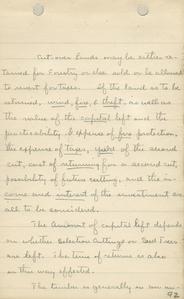 Cut-over Lands may be either re-
tained for Forestry or else sold or be allowed
to revert for taxes. If the land is to be
returned, wind, fire, & theft, as well as
the value of the capital left and the
practicability & expense of fire protection,
the expense of taxes, yield of the second
cut, cost of returning for a second cut,
possibility of future cutting, and the in-
come and interest of the investment are
all to be considered.
The Amount of capital left depends
on whether Selection Cuttings or Seed Trees
are left. The time of returns is also
in this way affected.
The timber is generally in an un-
92